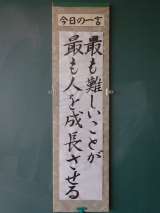 今日の一言
最も難しいことが
最も人を成長させる